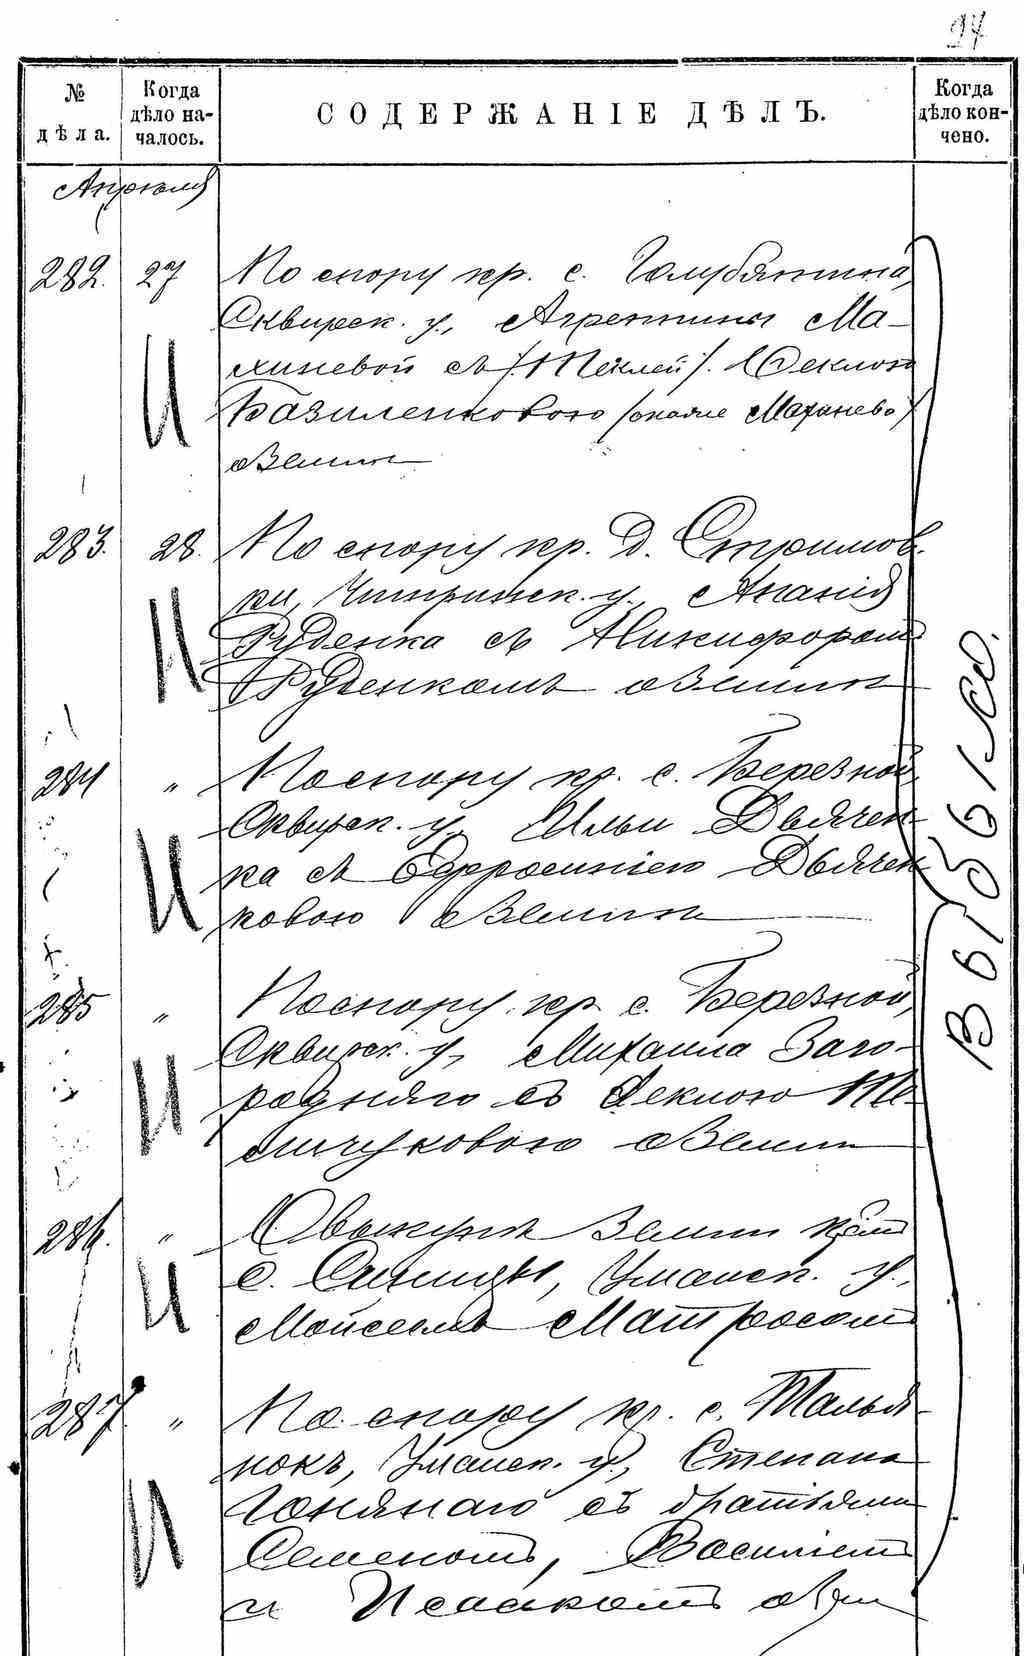 27
№ дѣла.
Когда дѣло началось.
СОДЕРЖАНІЕ ДѢЛЪ.
Когда дѣло кончено.
Апрѣля
282. 27 По спору кр. с. Голубятина,
Сквирск. у., Агрепины Ма-
хиневой съ /Теклей/. Феклою
Базиленковою /она же Махинева/
о землѣ
283. 28. По спору кр. д. Стримов-
ки, Чигиринск. у., Ананія
Руденка съ Никифоромъ
Руденкомъ о землѣ
284 " По спору кр. с. Березной,
Сквирск. у. Ильи Дьячен-
ка съ Ефросиніею Дьячен
ковою о землѣ
285 " По спору кр. с. Березной,
Сквирск. у., Михаила Заго-
родняго съ Феклою
о землѣ
286. " О выкупѣ земли кр-мъ
с. Синицы, Уманск. у.,
Мойсеемъ Матросомъ
287 " По спору кр. с. Талья-
нокъ, Уманск. у., Степана
съ братьями
Семеномъ, Василіемъ
и Исаакомъ о зем
Выбыло.